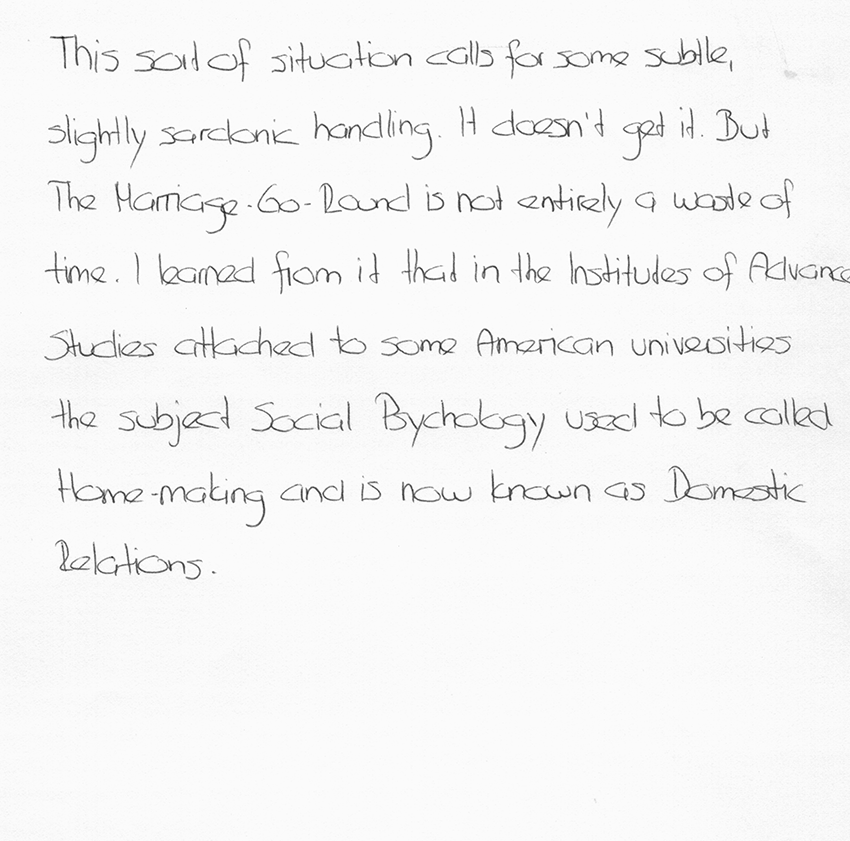 This sort of situation calls for some subtle,
slightly sardonic handling. It doesn't get it. But
The Marriage-Go-Round is not entirely a waste of
time. I learned from it that in the Institutes of Advance
Studies attached to some American universities
the subject Social Psychology used to be called
Home-making and is now known as Domestic
Relations.